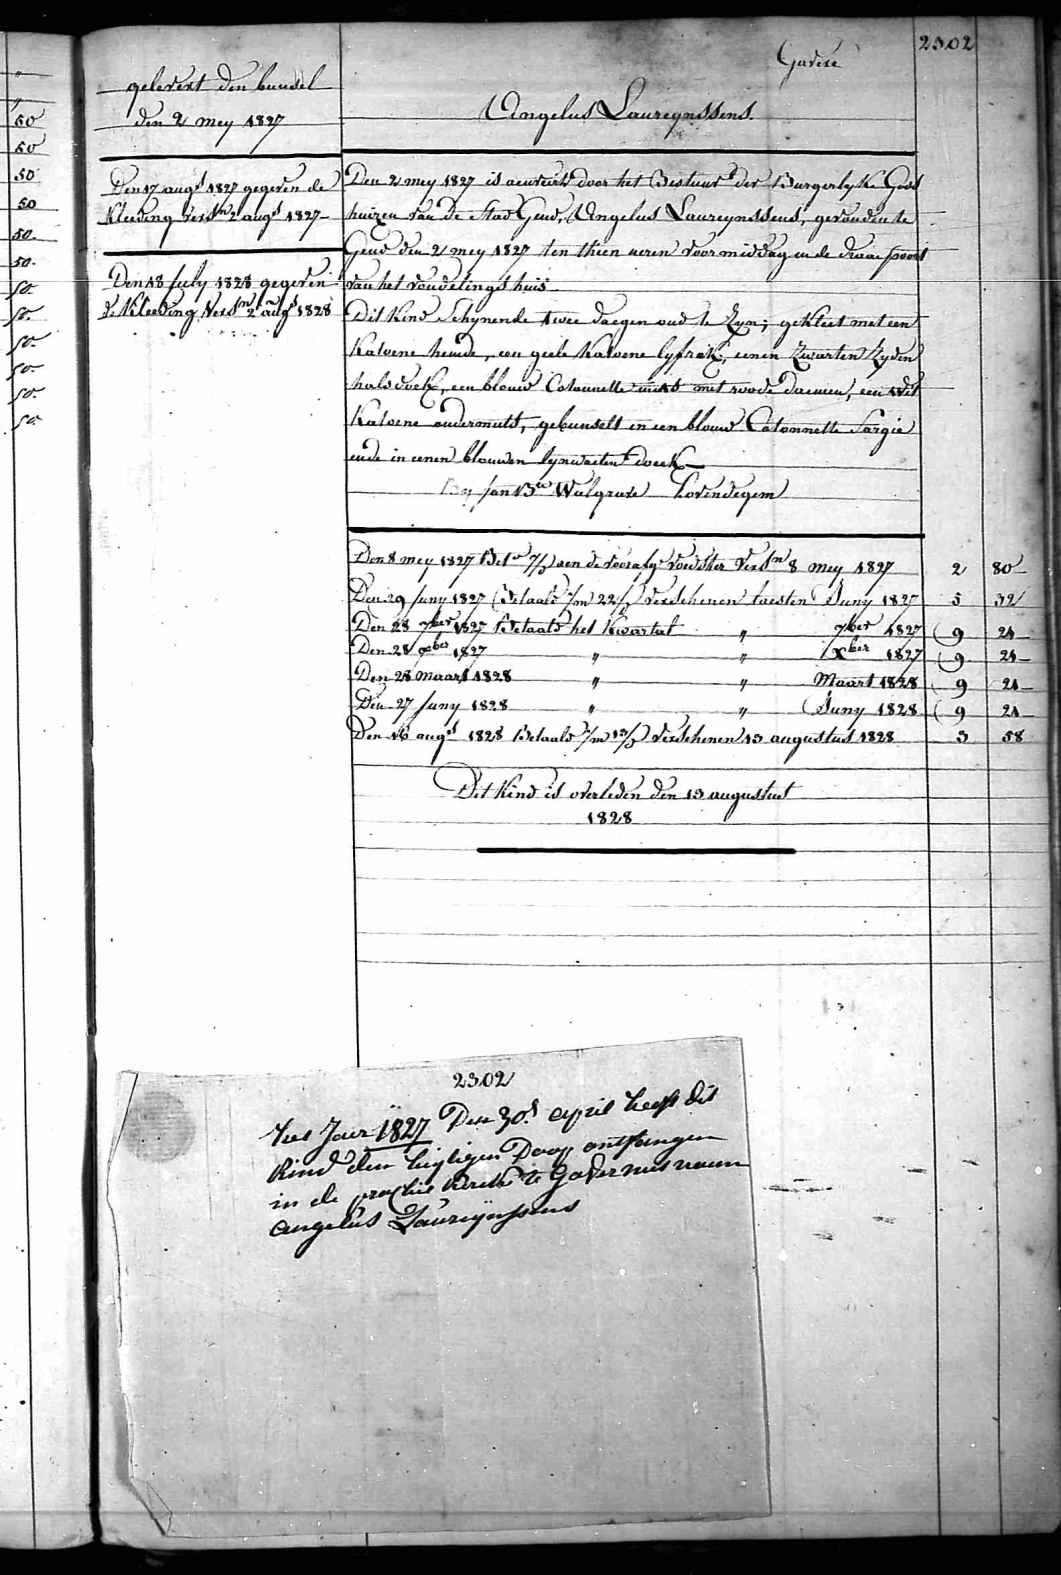 2302
Gavere
gelevert den bundel
den 2 mey 1827
Angelus Laureynssens.
Den 17 augt 1827 gegeven de
Kleeding versn 2 augt 1827
Den 18 july 1828 gegeven
de Kleeding Versn 2 augt 1828
Den 2 mey 1827 is aenveird door het Bestuur der Burgerlyke Gods
huizen van de Stad Gend, Angelus Laureynssens, gevonden te
Gend den 2 mey 1827 ten thien ueren voormiddag in de draai poort
van het vondelings huis
Dit Kind Schynende twee daegen oud te Zyn; gekleet met een
Katoene hemde, een geele Katoene lyfrok, eenen Zwarten Zyden
halsdoek, een blouw Cotonnette muts met roode daemen, een wit
Katoene ondermuts, gebunselt in een blouw Catonnette Sargie
ende in eenen blouwen lynwaeten doeck
By Jan Bte Walgrave Lovendegem
Den 8 mey 1827 Bet 7/ aen de voorafge voedster Versn 8 mey 1827 2 80
Den 29 Juny 1827 Betaald 1/m 22/ verschenen laesten Juny 1827 5 32
Den 28 7ber 1827 Betaald het Kwartal " 7ber 1827 9 24
Den 28 xber 1827 " " Xber 1827 9 24
Den 28 maart 1828 " " Maart 1828 9 24
Den 27 Juny 1828 " " Juny 1828 9 24
Den 16 augt 1828 Betaald 1/m 13/ verschenen 13 augustus 1828 3 58
Dit Kind is overleden den 13 augustus
1828
2302
Jaer 1827 Den 30st april heeft dit
Kind den heyligen Doop ontfangen
in de prochie kercke te Gaver met naem
angelus Laureÿnssens
50
50
50
50
50
50
50
50
50
50
50
50